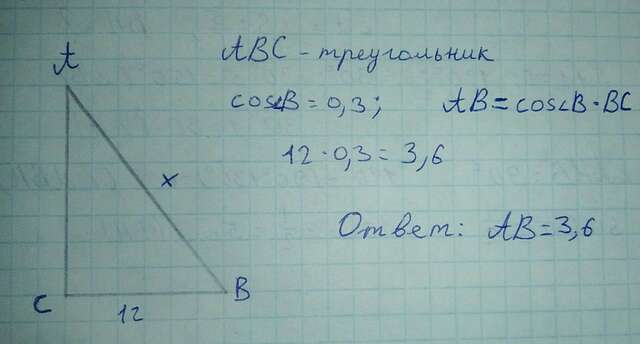 A
ABC - треугольник
cos∠B = 0,3; AB = cos∠B · BC
12 · 0,3 = 3,6
x
Ответ: AB = 3,6
C
B
12